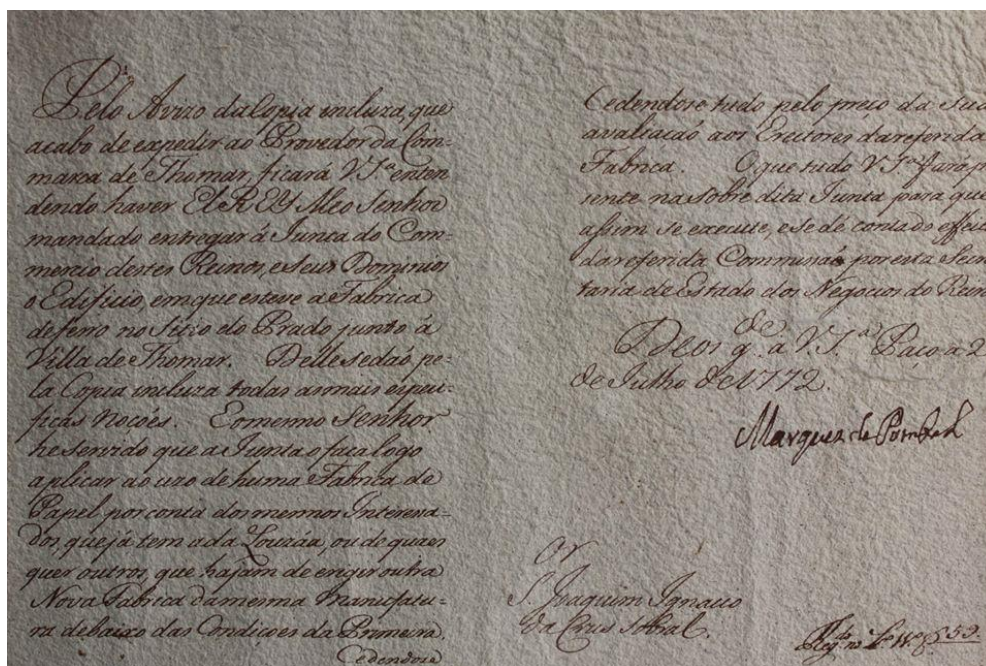 Pelo Avizo da Copia incluza, que
acabo de expedir ao Provedor da Com=
marca de Thomar, ficará V Sª enten
dendo haver El REY Meo Senhor
mandado entregar á Junta do Com=
mercio destes Reinos, e seus Dominios
o Edificio, em que esteve a Fabrica
de ferro no Sitio do Prado junto á
Villa de Thomar. Delle se daó, pe=
la Copia incluza todas as mais especi=
ficas nocoés. E o mesmo Senhor
he servido que a Junta o faca logo
aplicar ao uzo de huma Fabrica de
Papel por conta dos mesmos Interesa=
dos, que já tem a da Louzáa, ou de quaes
quer outros, que hajam de erigir outra
Nova Fabrica da mesma Manufatu=
ra debaixo das Condicoes da Primeira.
Cedendose
Cedendose tudo pelo preco da sua
avaliacaó aos Eretores da referida
Fabrica. O que tudo V Sª fará p
zente na sobre dita Junta para que
assim se execute, e se dé conta do effeit
da referida Commisaó por esta Secre
taria de Estado dos Negocios do Rein
Deos g.de a V. S.ª Paco a 2
de Julho de 1772.
Marquez de Pombal
S.r Joaquim Ignacio
da Crus Sobral.